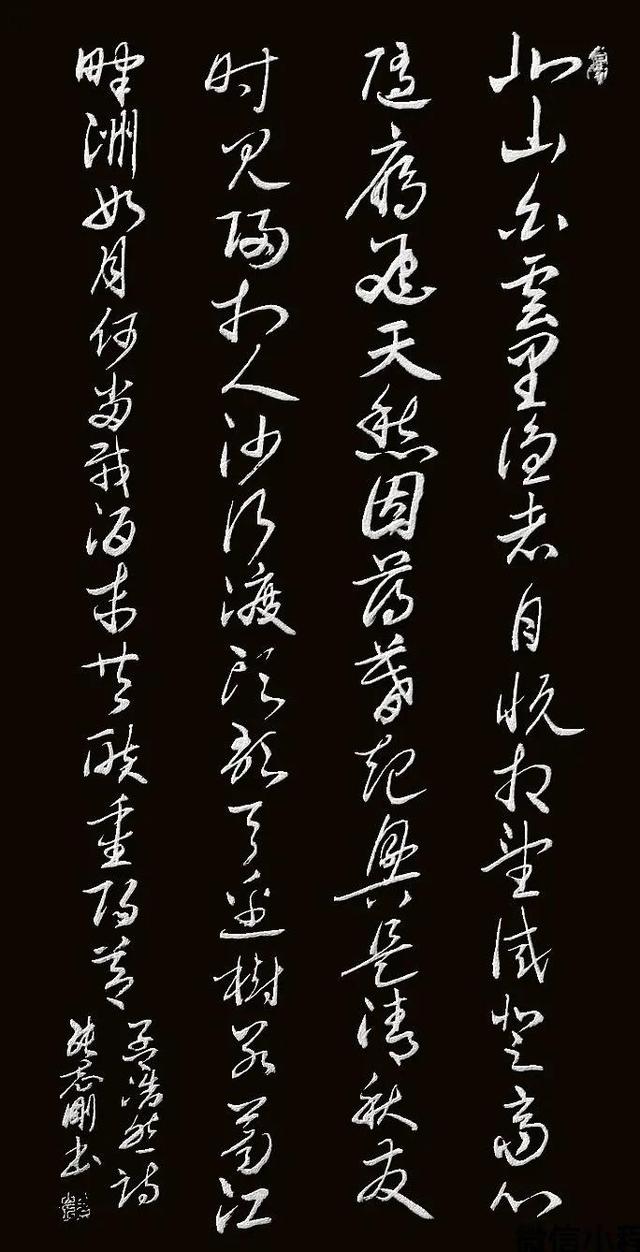 北山白雲里隐者自悦相望试登高心
随雁飞天愁因薄暮起興是清秋发
时见归村人沙行渡头歇天边樹若荠江
畔洲如月何当载酒来共醉重阳节
孟浩然詩
张志刚书
微信小程